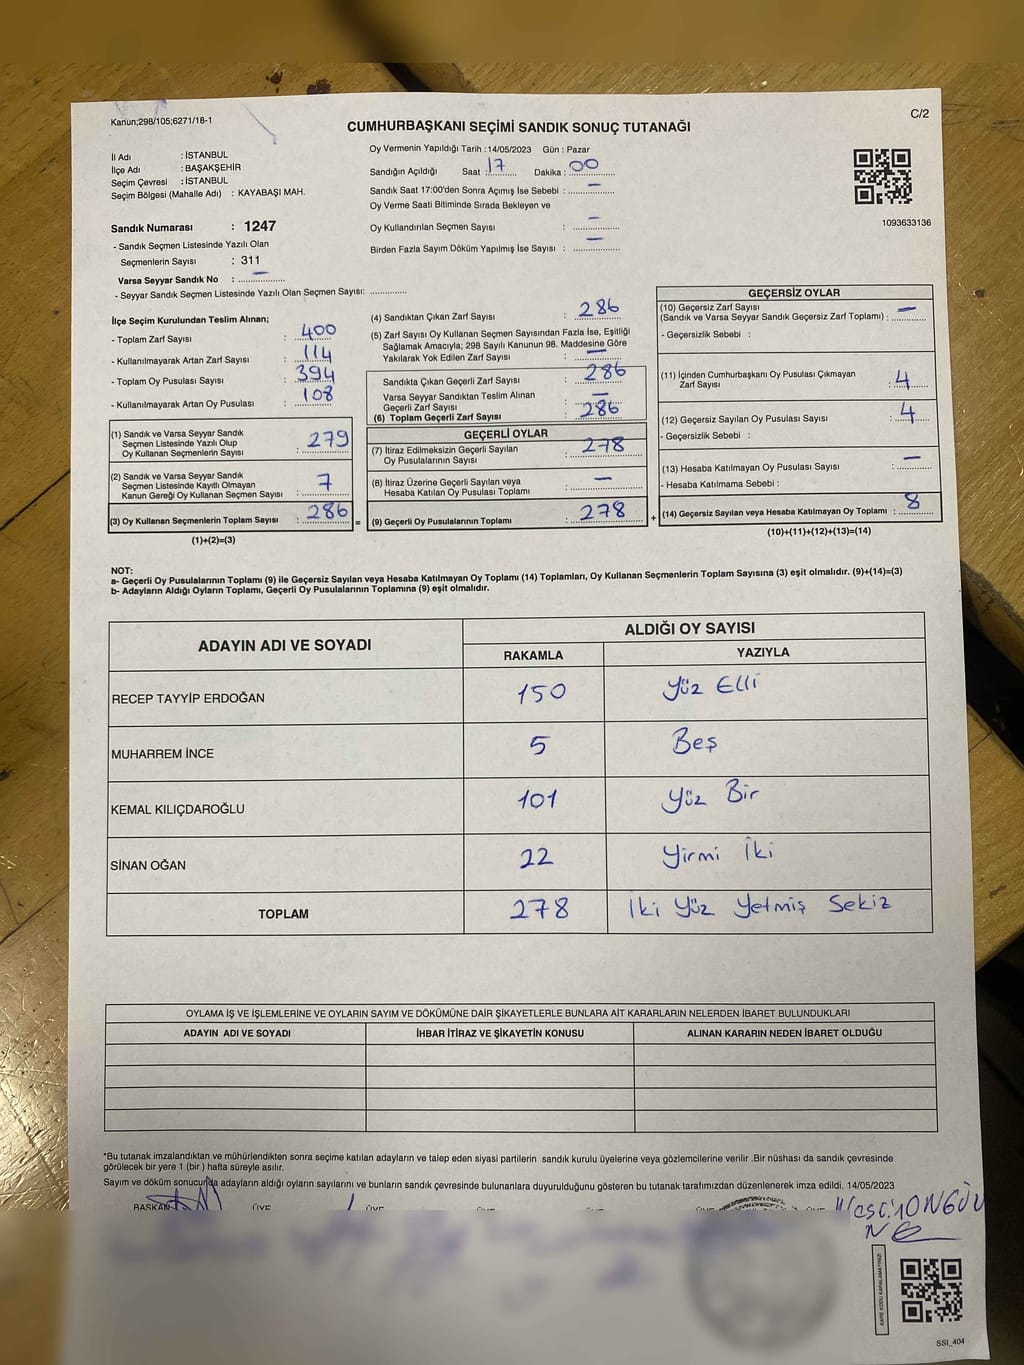 Kanun;298/105;6271/18-1
C/2
CUMHURBAŞKANI SEÇİMİ SANDIK SONUÇ TUTANAĞI
İl Adı : İSTANBUL
İlçe Adı : BAŞAKŞEHİR
Seçim Çevresi : İSTANBUL
Seçim Bölgesi (Mahalle Adı) : KAYABAŞI MAH.
Sandık Numarası : 1247
- Sandık Seçmen Listesinde Yazılı Olan
Seçmenlerin Sayısı : 311
Varsa Seyyar Sandık No : –
- Seyyar Sandık Seçmen Listesinde Yazılı Olan Seçmen Sayısı: ..............
Oy Vermenin Yapıldığı Tarih :14/05/2023 Gün : Pazar
Sandığın Açıldığı Saat : 17 Dakika : 00
Sandık Saat 17:00'den Sonra Açımış İse Sebebi : –
Oy Verme Saati Bitiminde Sırada Bekleyen ve
Oy Kullandırılan Seçmen Sayısı : –
Birden Fazla Sayım Döküm Yapılmış İse Sayısı : –
1093633136
İlçe Seçim Kurulundan Teslim Alınan;
- Toplam Zarf Sayısı : 400
- Kullanılmayarak Artan Zarf Sayısı : 114
- Toplam Oy Pusulası Sayısı : 394
- Kullanılmayarak Artan Oy Pusulası : 108
(1) Sandık ve Varsa Seyyar Sandık
Seçmen Listesinde Yazılı Olup
Oy Kullanan Seçmenlerin Sayısı : 279
(2) Sandık ve Varsa Seyyar Sandık
Seçmen Listesinde Kayıtlı Olmayan
Kanun Gereği Oy Kullanan Seçmen Sayısı : 7
(3) Oy Kullanan Seçmenlerin Toplam Sayısı : 286
(1)+(2)=(3)
(4) Sandıktan Çıkan Zarf Sayısı : 286
(5) Zarf Sayısı Oy Kullanan Seçmen Sayısından Fazla İse, Eşitliği
Sağlamak Amacıyla; 298 Sayılı Kanunun 98. Maddesine Göre
Yakılarak Yok Edilen Zarf Sayısı : –
Sandıkta Çıkan Geçerli Zarf Sayısı : 286
Varsa Seyyar Sandıktan Teslim Alınan
Geçerli Zarf Sayısı : –
(6) Toplam Geçerli Zarf Sayısı : 286
GEÇERLİ OYLAR
(7) İtiraz Edilmeksizin Geçerli Sayılan
Oy Pusulalarının Sayısı : 278
(8) İtiraz Üzerine Geçerli Sayılan veya
Hesaba Katılan Oy Pusulası Toplamı : –
= (9) Geçerli Oy Pusulalarının Toplamı : 278 +
GEÇERSİZ OYLAR
(10) Geçersiz Zarf Sayısı
(Sandık ve Varsa Seyyar Sandık Geçersiz Zarf Toplamı) : –
- Geçersizlik Sebebi :
(11) İçinden Cumhurbaşkanı Oy Pusulası Çıkmayan
Zarf Sayısı : 4
(12) Geçersiz Sayılan Oy Pusulası Sayısı : 4
- Geçersizlik Sebebi :
(13) Hesaba Katılmayan Oy Pusulası Sayısı : –
- Hesaba Katılmama Sebebi :
(14) Geçersiz Sayılan veya Hesaba Katılmayan Oy Toplamı : 8
(10)+(11)+(12)+(13)=(14)
NOT:
a- Geçerli Oy Pusulalarının Toplamı (9) ile Geçersiz Sayılan veya Hesaba Katılmayan Oy Toplamı (14) Toplamları, Oy Kullanan Seçmenlerin Toplam Sayısına (3) eşit olmalıdır. (9)+(14)=(3)
b- Adayların Aldığı Oyların Toplamı, Geçerli Oy Pusulalarının Toplamına (9) eşit olmalıdır.
ADAYIN ADI VE SOYADI ALDIĞI OY SAYISI
RAKAMLA YAZIYLA
RECEP TAYYİP ERDOĞAN 150 Yüz Elli
MUHARREM İNCE 5 Beş
KEMAL KILIÇDAROĞLU 101 Yüz Bir
SİNAN OĞAN 22 Yirmi İki
TOPLAM 278 İki Yüz Yetmiş Sekiz
OYLAMA İŞ VE İŞLEMLERİNE VE OYLARIN SAYIM VE DÖKÜMÜNE DAİR ŞİKAYETLERLE BUNLARA AİT KARARLARIN NELERDEN İBARET BULUNDUKLARI
ADAYIN ADI VE SOYADI İHBAR İTİRAZ VE ŞİKAYETİN KONUSU ALINAN KARARIN NEDEN İBARET OLDUĞU
*Bu tutanak imzalandıktan ve mühürlendikten sonra seçime katılan adayların ve talep eden siyasi partilerin sandık kurulu üyelerine veya gözlemcilerine verilir .Bir nüshası da sandık çevresinde
görülecek bir yere 1 (bir ) hafta süreyle asılır.
Sayım ve döküm sonucunda adayların aldığı oyların sayılarını ve bunların sandık çevresinde bulunanlara duyurulduğunu gösteren bu tutanak tarafımızdan düzenlenerek imza edildi. 14/05/2023
BAŞKAN ÜYE ÜYE
KARE KODU KARALAMAYINIZ!
SSI_404